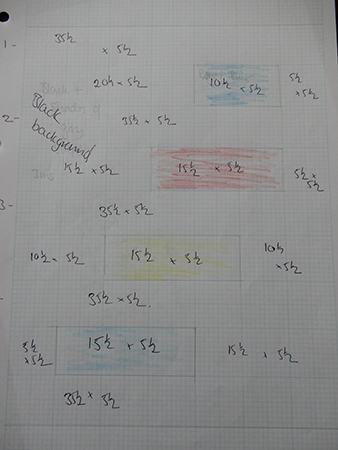 1 -
35½ × 5½
20½ × 5½ 10½ × 5½ 5½ × 5½
Black +
2 -
Black background
35½ × 5½
15½ × 5½ 15½ × 5½ 5½ × 5½
3 -
35½ × 5½
10½ × 5½ 15½ × 5½ 10½ × 5½
35½ × 5½.
5½ × 5½ 15½ × 5½ 15½ × 5½
35½ × 5½